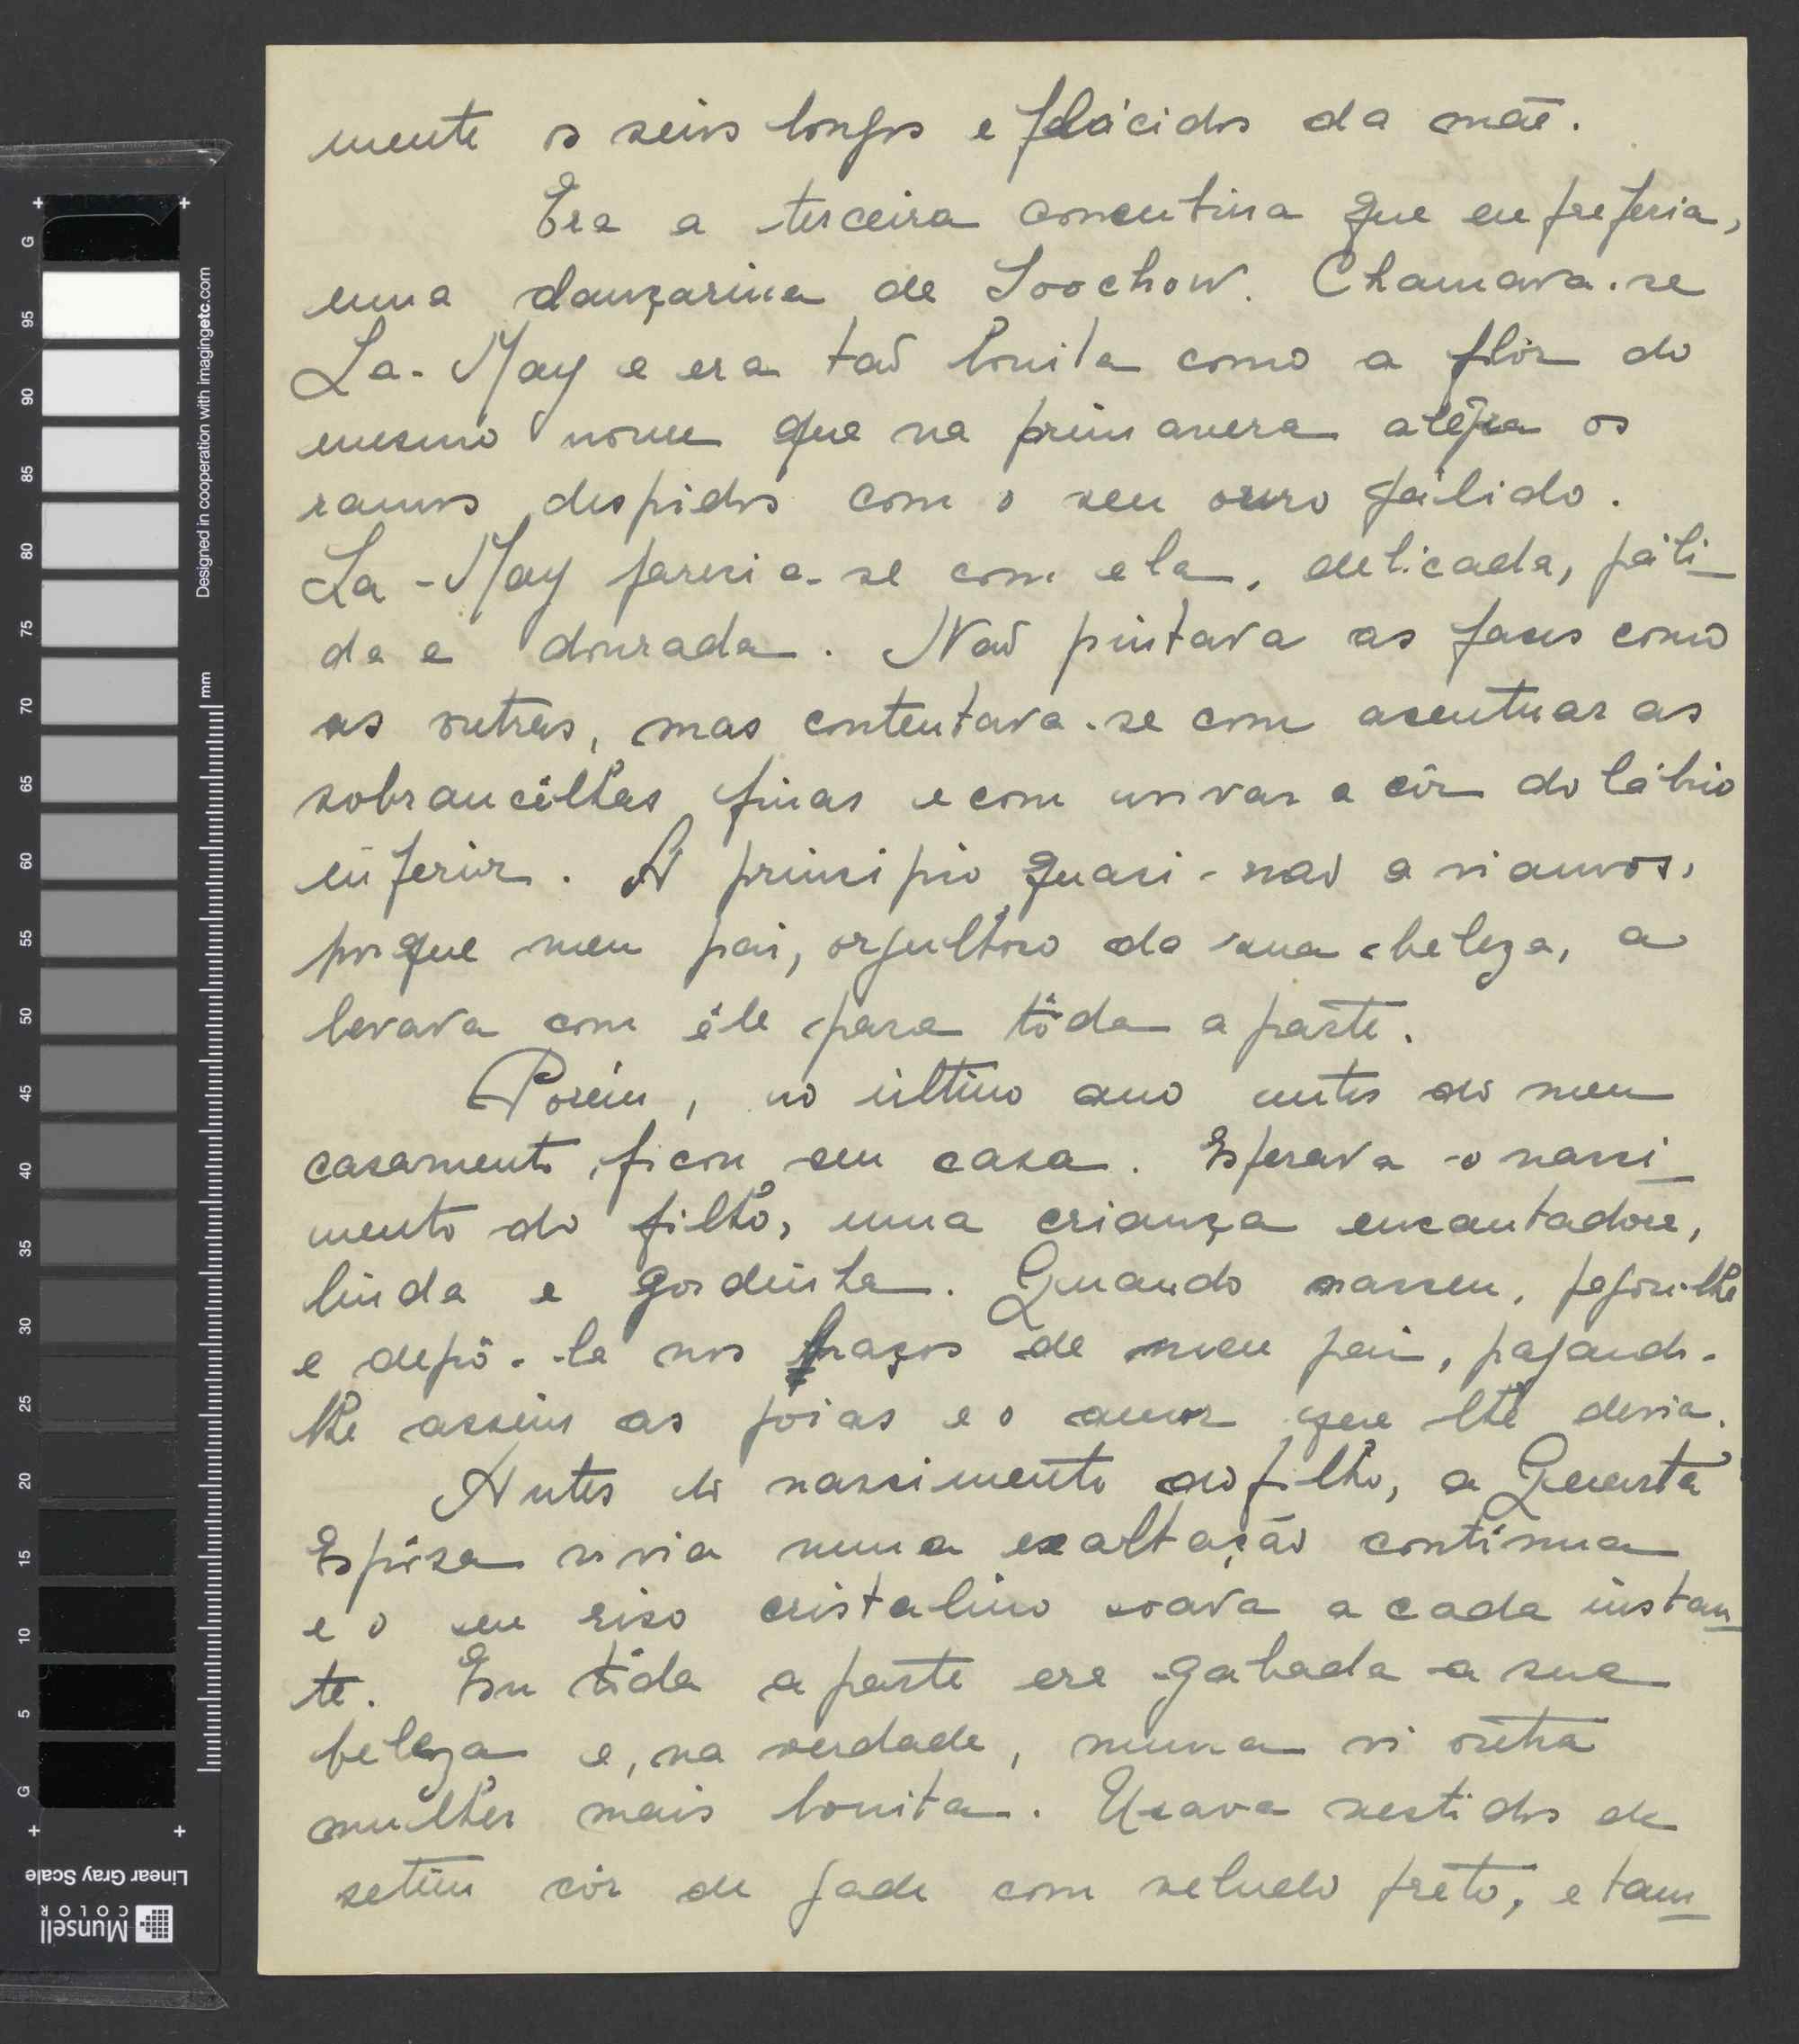 mente os seios longos e flácidos da mãe.
Era a terceira concubina que eu preferia,
uma dançarina de Soochow. Chamava-se
La-May e era tão bonita como a flôr do
mesmo nome que na primavera alegra os
ramos despidos com o seu ouro pálido.
La-May parecia-se com ela, delicada, páli-
da e dourada. Não pintava as faces como
as outras, mas contentava-se com acentuar as
sobrancêlhas finas e com avivar a côr do lábio
inferior. A principio quasi-não a viamos,
porque meu pai, orgulhoso da sua beleza, a
levava com êle para tôda a parte.
Porém, no último ano antes do meu
casamento ficou em casa. Esperava o nasci-
mento do filho, uma criança encantadora,
linda e gordinha. Quando nasceu, pegou-lhe
e depô-la nos braços de meu pai, pagando-
lhe assim as joias e o amor que lhe devia.
Antes do nascimento do filho, a Quarta
Espôsa vivia numa exaltação continua
e o seu riso cristalino soava a cada instan-
te. Em tôda a parte era gabada a sua
beleza e, na verdade, nunca vi outra
mulher mais bonita. Usava vestidos de
setim côr de jade com veludo preto, e tam-
Designed in cooperation with imagingetc.com
mm
G 95 90 85 80 75 70 65 60 55 50 45 40 35 30 25 20 15 10 5 G
Linear Gray Scale
Munsell
COLOR